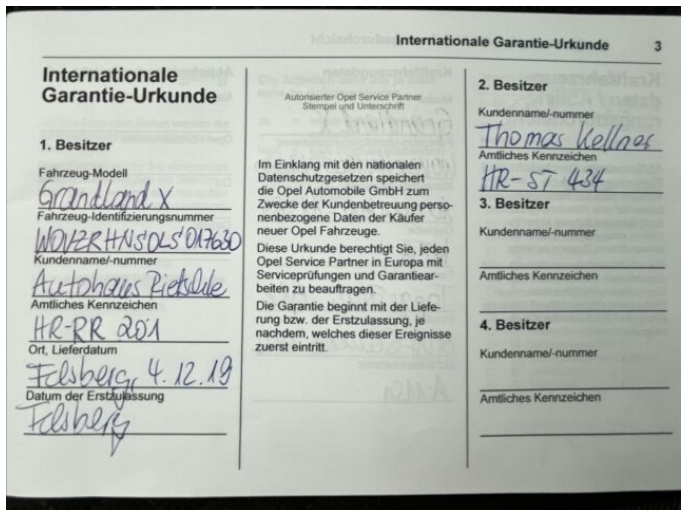 Internationale Garantie-Urkunde 3
Internationale
Garantie-Urkunde
1. Besitzer
Fahrzeug-Modell
Grandland X
Fahrzeug-Identifizierungsnummer
Kundenname/-nummer
Autohaus
Amtliches Kennzeichen
HR-RR 201
Ort, Lieferdatum
Felsberg, 4.12.19
Datum der Erstzulassung
Felsberg
Autorisierter Opel Service Partner
Stempel und Unterschrift
Im Einklang mit den nationalen
Datenschutzgesetzen speichert
die Opel Automobile GmbH zum
Zwecke der Kundenbetreuung perso-
nenbezogene Daten der Käufer
neuer Opel Fahrzeuge.
Diese Urkunde berechtigt Sie, jeden
Opel Service Partner in Europa mit
Serviceprüfungen und Garantiear-
beiten zu beauftragen.
Die Garantie beginnt mit der Liefe-
rung bzw. der Erstzulassung, je
nachdem, welches dieser Ereignisse
zuerst eintritt.
2. Besitzer
Kundenname/-nummer
Thomas Kellner
Amtliches Kennzeichen
HR-ST 434
3. Besitzer
Kundenname/-nummer
Amtliches Kennzeichen
4. Besitzer
Kundenname/-nummer
Amtliches Kennzeichen